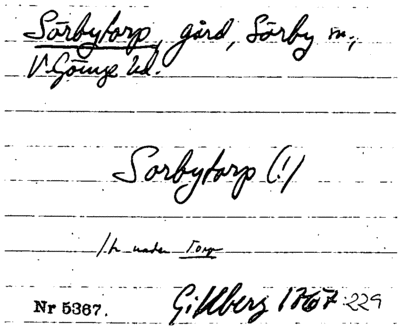 Sörbytorp, gård, Sörby sn,
V Göinge hd.
Sorbytorp (!)
under Torp
Nr 5367. Gillberg 1767 229